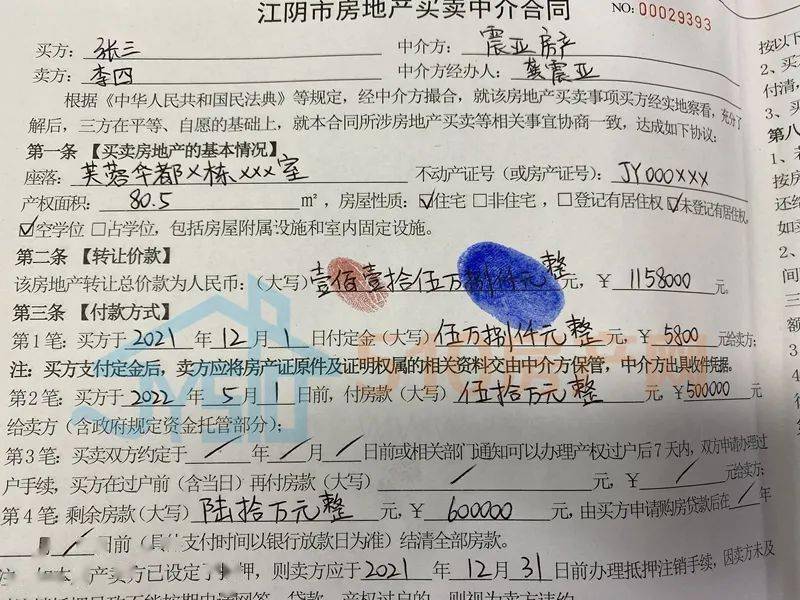 江阴市房地产买卖中介合同 NO:00029393
买方：张三 中介方：震亚房产
卖方：李四 中介方经办人：龚震亚
根据《中华人民共和国民法典》等规定，经中介方撮合，就该房地产买卖事项买方经实地察看，充分了
解后，三方在平等、自愿的基础上，就本合同所涉房地产买卖等相关事宜协商一致，达成如下协议：
第一条 【买卖房地产的基本情况】
座落：芙蓉华都×栋×××室 不动产证号（或房产证号）：JY000×××
产权面积：80.5 ㎡，房屋性质：☑住宅 □非住宅，□登记有居住权 ☑未登记有居住权，
☑空学位 □占学位，包括房屋附属设施和室内固定设施。
第二条 【转让价款】
该房地产转让总价款为人民币：（大写）壹佰壹拾伍万捌仟元整 元，¥ 1158000 元。
第三条 【付款方式】
第1笔：买方于 2021 年 12 月 1 日付定金（大写）伍万捌仟元整 元，¥ 5800 元
注：买方支付定金后，卖方应将房产证原件及证明权属的相关资料交由中介方保管，中介方出具收件凭据。
第2笔：买方于 2022 年 5 月 1 日前，付房款（大写）伍拾万元整 元，¥500000 元
给卖方（含政府规定资金托管部分）；
第3笔：买卖双方约定于 / 年 / 月 / 日前或相关部门通知可以办理产权过户后7天内，双方申请办理过
户手续，买方在过户前（含当日）再付房款（大写） / 元，¥ / 元给卖方；
第4笔：剩余房款（大写）陆拾万元整 元，¥ 600000 元，由买方申请购房贷款后在 / 年
月 / 日前（具体支付时间以银行放款日为准）结清全部房款。
产卖方已设定 押，则卖方应于 2021 年 12 月 31 日前办理抵押注销手续，因卖方未及
按以下
2、买
付清，
3、买
第八